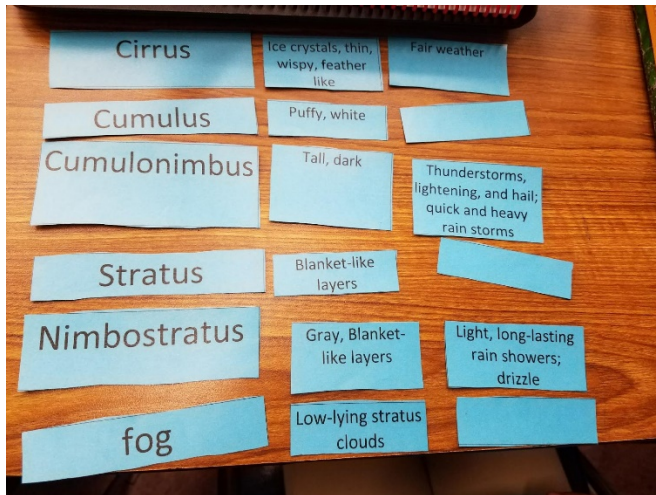 Cirrus
Ice crystals, thin,
wispy, feather
like
Fair weather
Cumulus
Puffy, white
Cumulonimbus
Tall, dark
Thunderstorms,
lightening, and hail;
quick and heavy
rain storms
Stratus
Blanket-like
layers
Nimbostratus
Gray, Blanket-
like layers
Light, long-lasting
rain showers;
drizzle
fog
Low-lying stratus
clouds